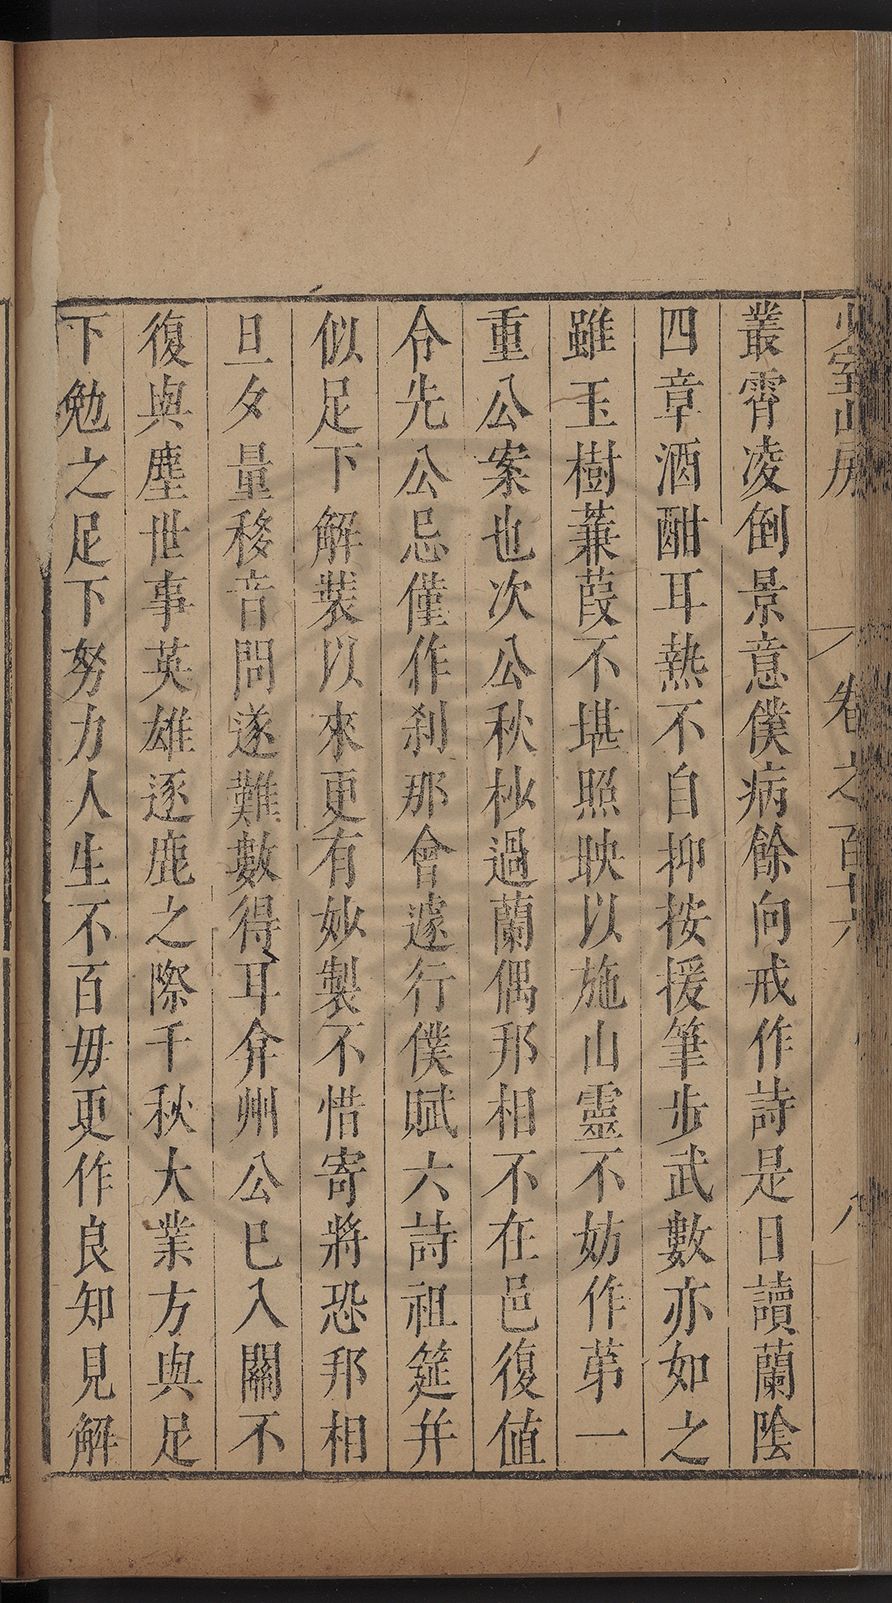 叢霄凌倒景意僕病餘向戒作詩是日讀蘭陰
四章酒酣耳熱不自抑按援筆步武數亦如之
雖玉樹蒹葭不堪照映以施山靈不妨作苐一
重公案也次公秋杪過蘭偶邦相不在邑復值
令先公忌僅作刹那會遽行僕賦六詩祖筵并
似足下解裝以來更有妙製不惜寄將恐邦相
旦夕量移音問遂難數得耳弇州公已入關不
復與塵世事英雄逐鹿之際千秋大業方與足
下勉之足下努力人生不百毋更作良知見解
少室山房
卷之百十六
八